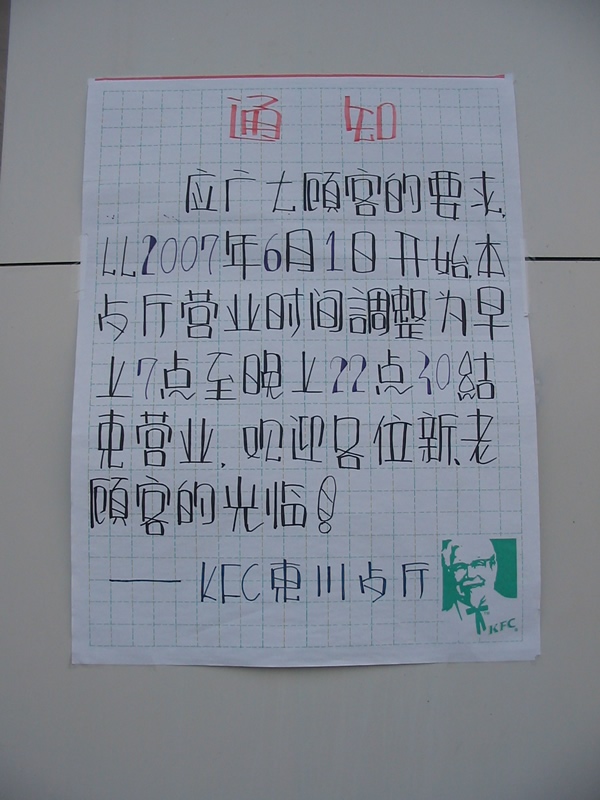 通知
应广大顧客的要求,
以2007年6月1日开始,本
歺厅营业时间調整为早
上7点至晚上22点30結
束营业,欢迎各位新老
顧客的光临!
——KFC東川歺厅
KFC.